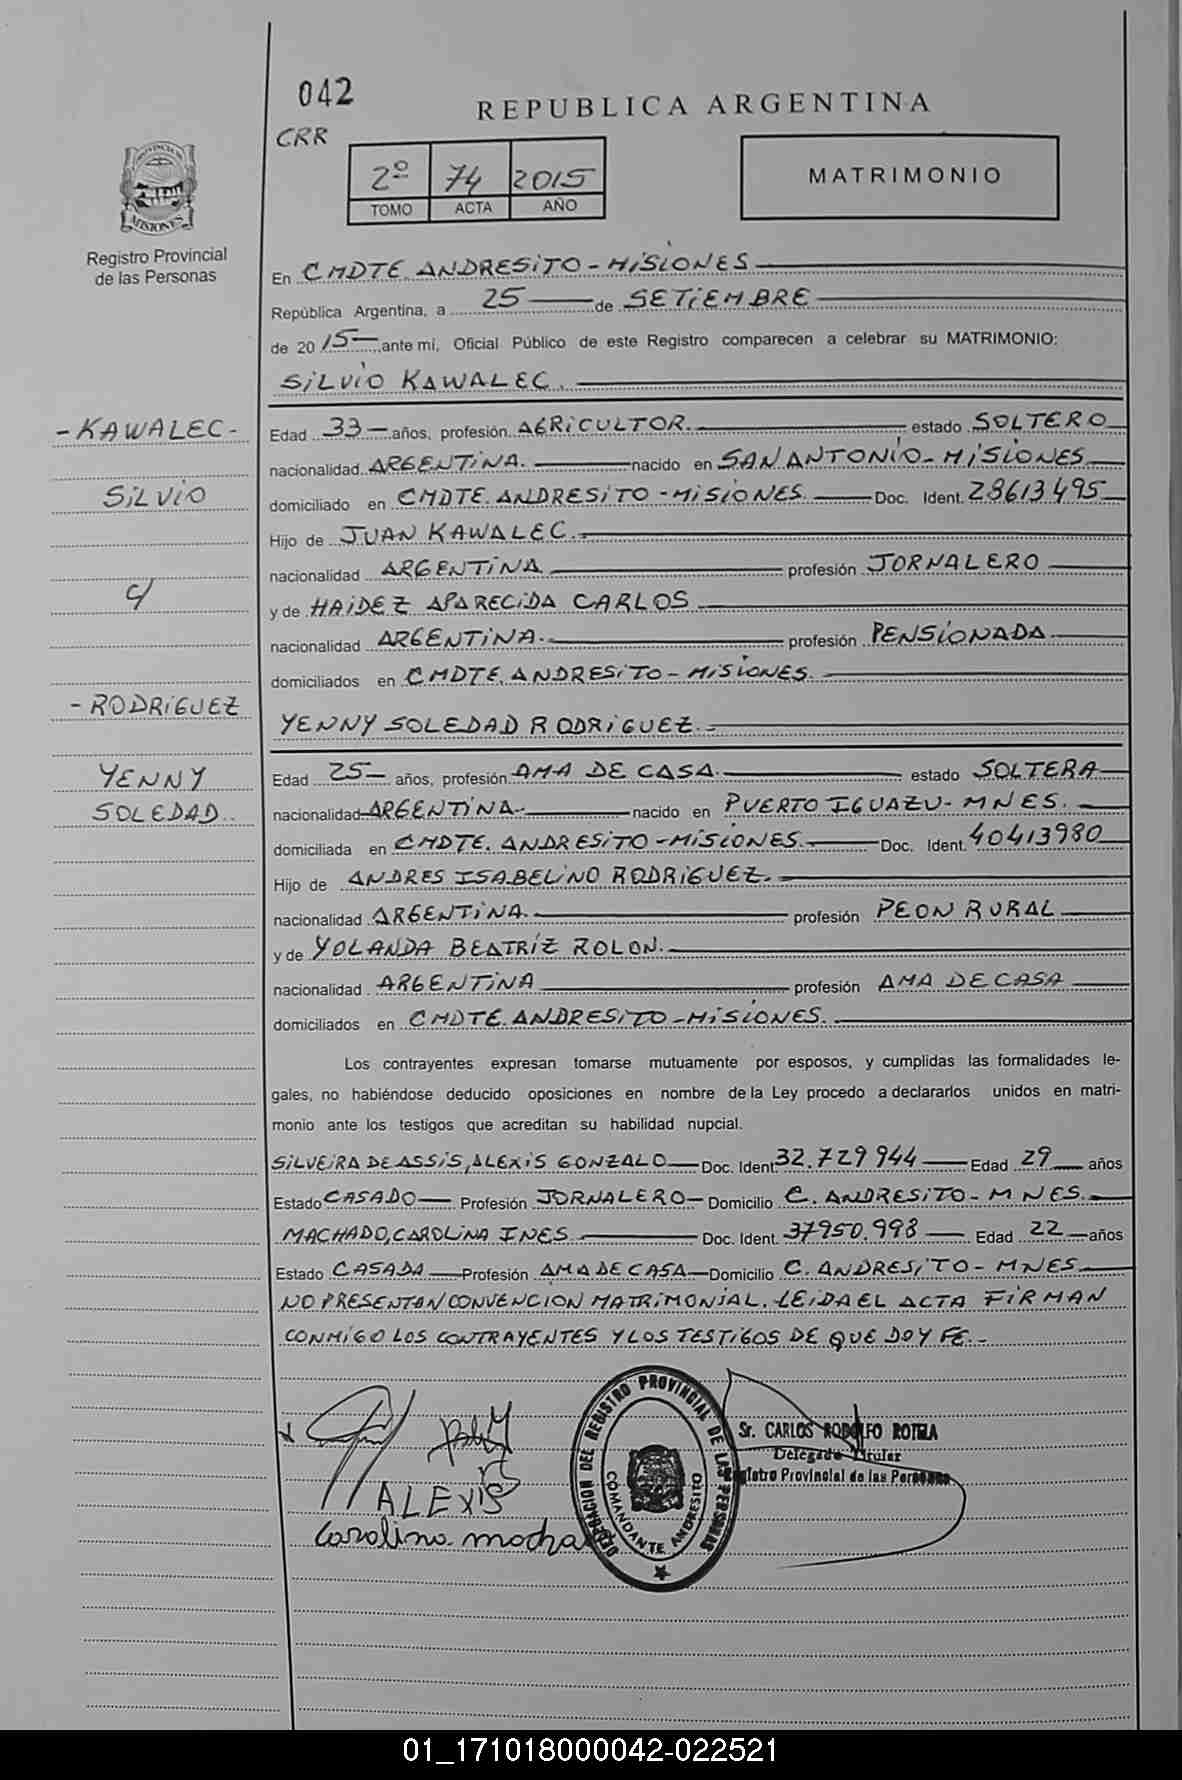 042
REPUBLICA ARGENTINA
CRR
2º 74 2015
TOMO ACTA AÑO
MATRIMONIO
PROVINCIA DE
MISIONES
Registro Provincial
de las Personas
En CMDTE. ANDRESITO - MISIONES
República Argentina, a 25 de SETIEMBRE
de 2015 ante mí, Oficial Público de este Registro comparecen a celebrar su MATRIMONIO:
SILVIO KAWALEC.
- KAWALEC -
Edad 33 años, profesión AGRICULTOR. estado SOLTERO
nacionalidad ARGENTINA. nacido en SAN ANTONIO - MISIONES
SILVIO
domiciliado en CMDTE. ANDRESITO - MISIONES. Doc. Ident. 28613495
Hijo de JUAN KAWALEC.
nacionalidad ARGENTINA profesión JORNALERO
c/
y de HAIDEZ APARECIDA CARLOS
nacionalidad ARGENTINA. profesión PENSIONADA
domiciliados en CMDTE. ANDRESITO - MISIONES.
- RODRIGUEZ
YENNY SOLEDAD RODRIGUEZ.
YENNY
Edad 25 años, profesión AMA DE CASA. estado SOLTERA
SOLEDAD.
nacionalidad ARGENTINA. nacido en PUERTO IGUAZU - MNES.
domiciliada en CMDTE. ANDRESITO - MISIONES. Doc. Ident. 40413980
Hijo de ANDRES ISABELINO RODRIGUEZ.
nacionalidad ARGENTINA. profesión PEON RURAL
y de YOLANDA BEATRIZ ROLON.
nacionalidad ARGENTINA profesión AMA DE CASA
domiciliados en CMDTE. ANDRESITO - MISIONES.
Los contrayentes expresan tomarse mutuamente por esposos, y cumplidas las formalidades le-
gales, no habiéndose deducido oposiciones en nombre de la Ley procedo a declararlos unidos en matri-
monio ante los testigos que acreditan su habilidad nupcial.
SILVEIRA DE ASSIS, ALEXIS GONZALO Doc. Ident. 32.729944 Edad 29 años
Estado CASADO Profesión JORNALERO Domicilio C. ANDRESITO - MNES.
MACHADO, CAROLINA INES Doc. Ident. 37950.998 Edad 22 años
Estado CASADA Profesión AMA DE CASA Domicilio C. ANDRESITO - MNES.
NO PRESENTAN CONVENCION MATRIMONIAL. LEIDA EL ACTA FIRMAN
CONMIGO LOS CONTRAYENTES Y LOS TESTIGOS DE QUE DOY FE.-
DELEGACION DEL REGISTRO PROVINCIAL DE LAS PERSONAS
COMANDANTE ANDRESITO
Sr. CARLOS RODOLFO ROTELA
Delegado Titular
Registro Provincial de las Personas
ALEXIS
Carolina machado
01_171018000042-022521